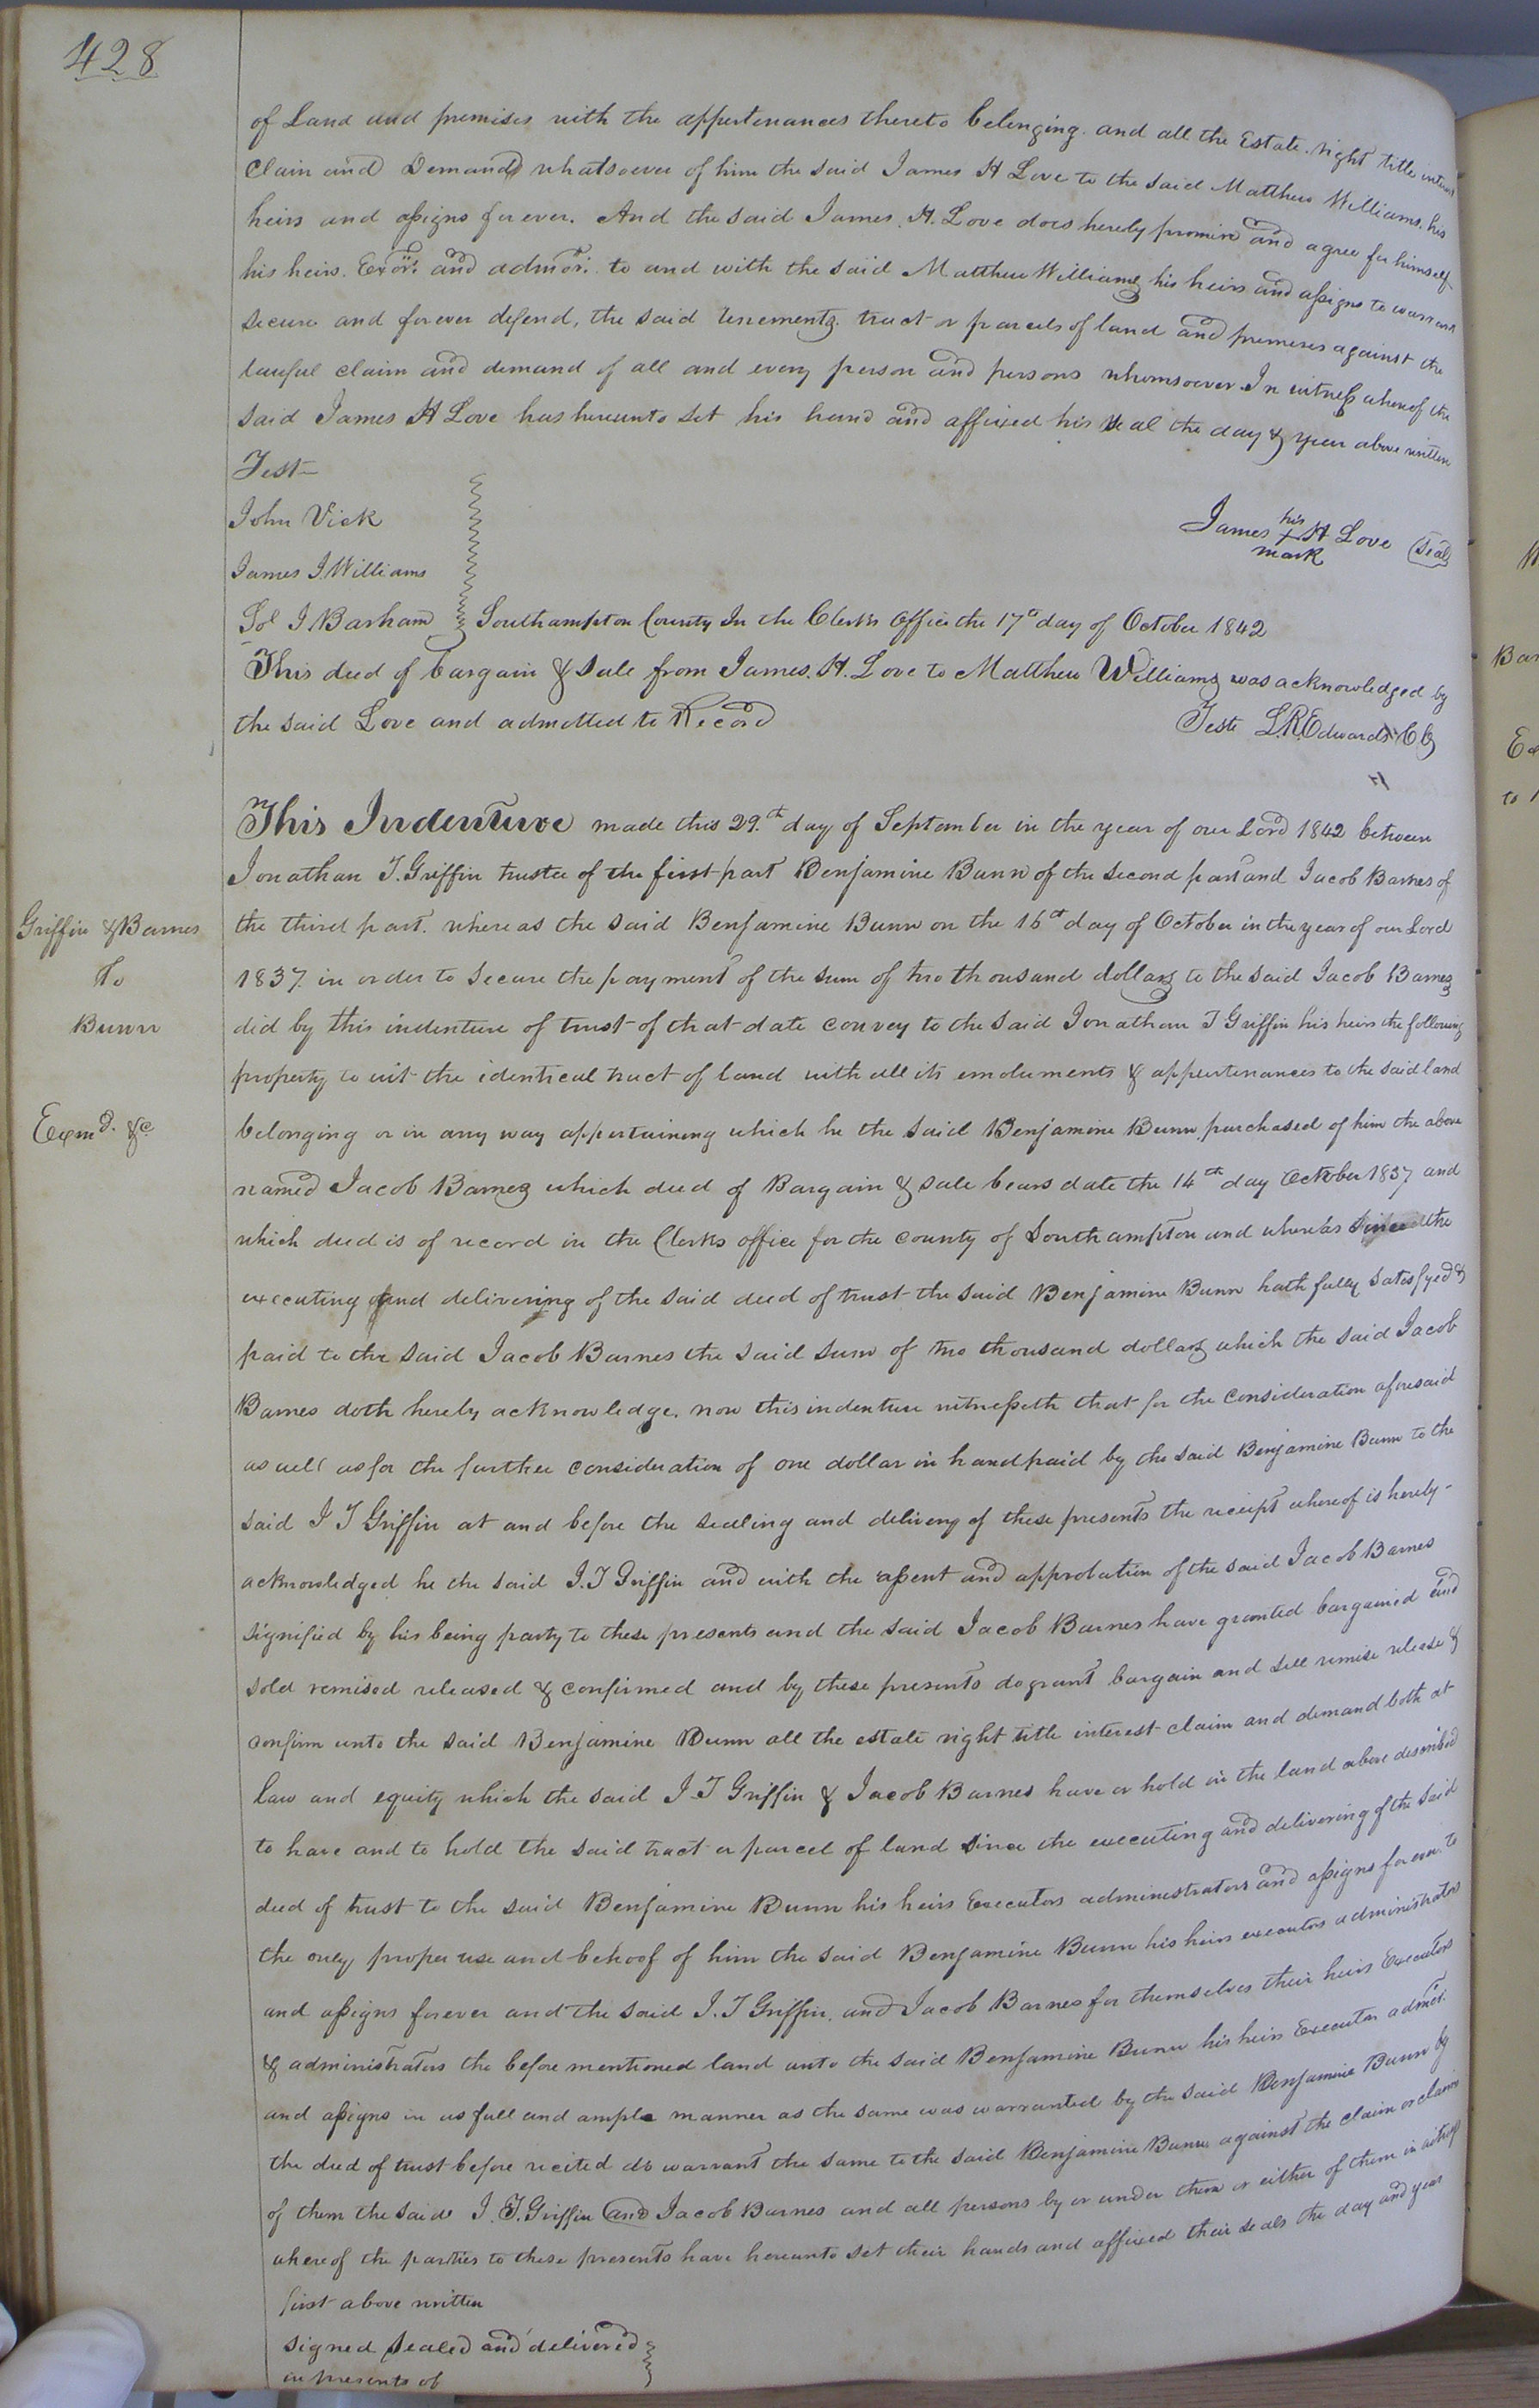 428
of Land and premises with the appertenances thereto belonging. and all the Estate. right title interest
Claim and Demand whatsoever of him the said James H Love to the said Matthew Williams. his
heirs and assigns forever. And the said James. H. Love does hereby promise and agree for himself
his heirs. Exors. and admors. to and with the said Matthew Williams his heirs and assigns to warrant
secure and forever defend, the said tenements. tract or parcels of land and premises against the
lawful claim and demand of all and every person and persons whomsoever In witness whereof the
said James H Love has hereunto set his hand and affixed his seal the day & year above written
Test
John Vick
James J. Williams
Sol J Barham
James his H Love (Seal)
+
mark
Southampton County In the Clerks office the 17th day of October 1842
This deed of bargain & Sale from James. H. Love to Matthew Williams was acknowledged by
the said Love and admitted to Record
Teste L.R. Edwards CC
This Indenture made this 29.th day of September in the year of our Lord 1842 between
Jonathan T. Griffin trustee of the first part Benjamine Bunn of the second part and Jacob Barnes of
Griffin & Barnes
To
Bunn
Exmd. &c
the third part. whereas the said Benjamine Bunn on the 16th day of October in the year of our Lord
1837. in order to secure the payment of the sum of two thousand dollars to the said Jacob Barnes
did by this indenture of trust of that date convey to the said Jonathan T Griffin his heirs the following
property to wit the identical tract of land with all its emoluments & appurtenances to the said land
belonging or in any way appertaining which he the said Benjamine Bunn purchased of him the above
named Jacob Barnes which deed of Bargain & sale bears date the 14th day October 1837 and
which deed is of record in the Clerks office for the county of Southampton and whereas since the
executing and delivering of the said deed of trust the said Benjamine Bunn hath fully satisfyed &
paid to the said Jacob Barnes the said sum of two thousand dollars which the said Jacob
Barnes doth hereby acknowledge. now this indenture witnesseth that for the consideration aforesaid
as well as for the further consideration of one dollar in hand paid by the said Benjamine Bunn to the
said J T Griffin at and before the sealing and delivery of these presents the receipt whereof is hereby-
acknowledged he the said J. T Griffin and with the assent and approbation of the said Jacob Barnes
signified by his being party to these presents and the said Jacob Barnes have granted bargained and
sold remised released & confirmed and by these presents do grant bargain and sell remise release &
confirm unto the said Benjamine Bunn all the estate right title interest claim and demand both at
law and equity which the said J. T Griffin & Jacob Barnes have or hold in the land above described
to have and to hold the said tract or parcel of land since the executing and delivering of the said
deed of trust to the said Benjamine Bunn his heirs Executors administrators and assigns forever to
the only proper use and behoof of him the said Benjamine Bunn his heirs executors administrators
and assigns forever and the said J. T Griffin. and Jacob Barnes for themselves their heirs Executors
& administrators the before mentioned land unto the said Benjamine Bunn his heirs Executor admors.
and assigns in as full and ample manner as the same was warranted by the said Benjamine Bunn by
the deed of trust before recited do warrant the same to the said Benjamine Bunn against the claim or claims
of them the said J. T. Griffin and Jacob Barnes and all persons by or under them or either of them in witness
whereof the parties to these presents have hereunto set their hands and affixed their seals the day and year
first above written
signed sealed and delivered
in presents of